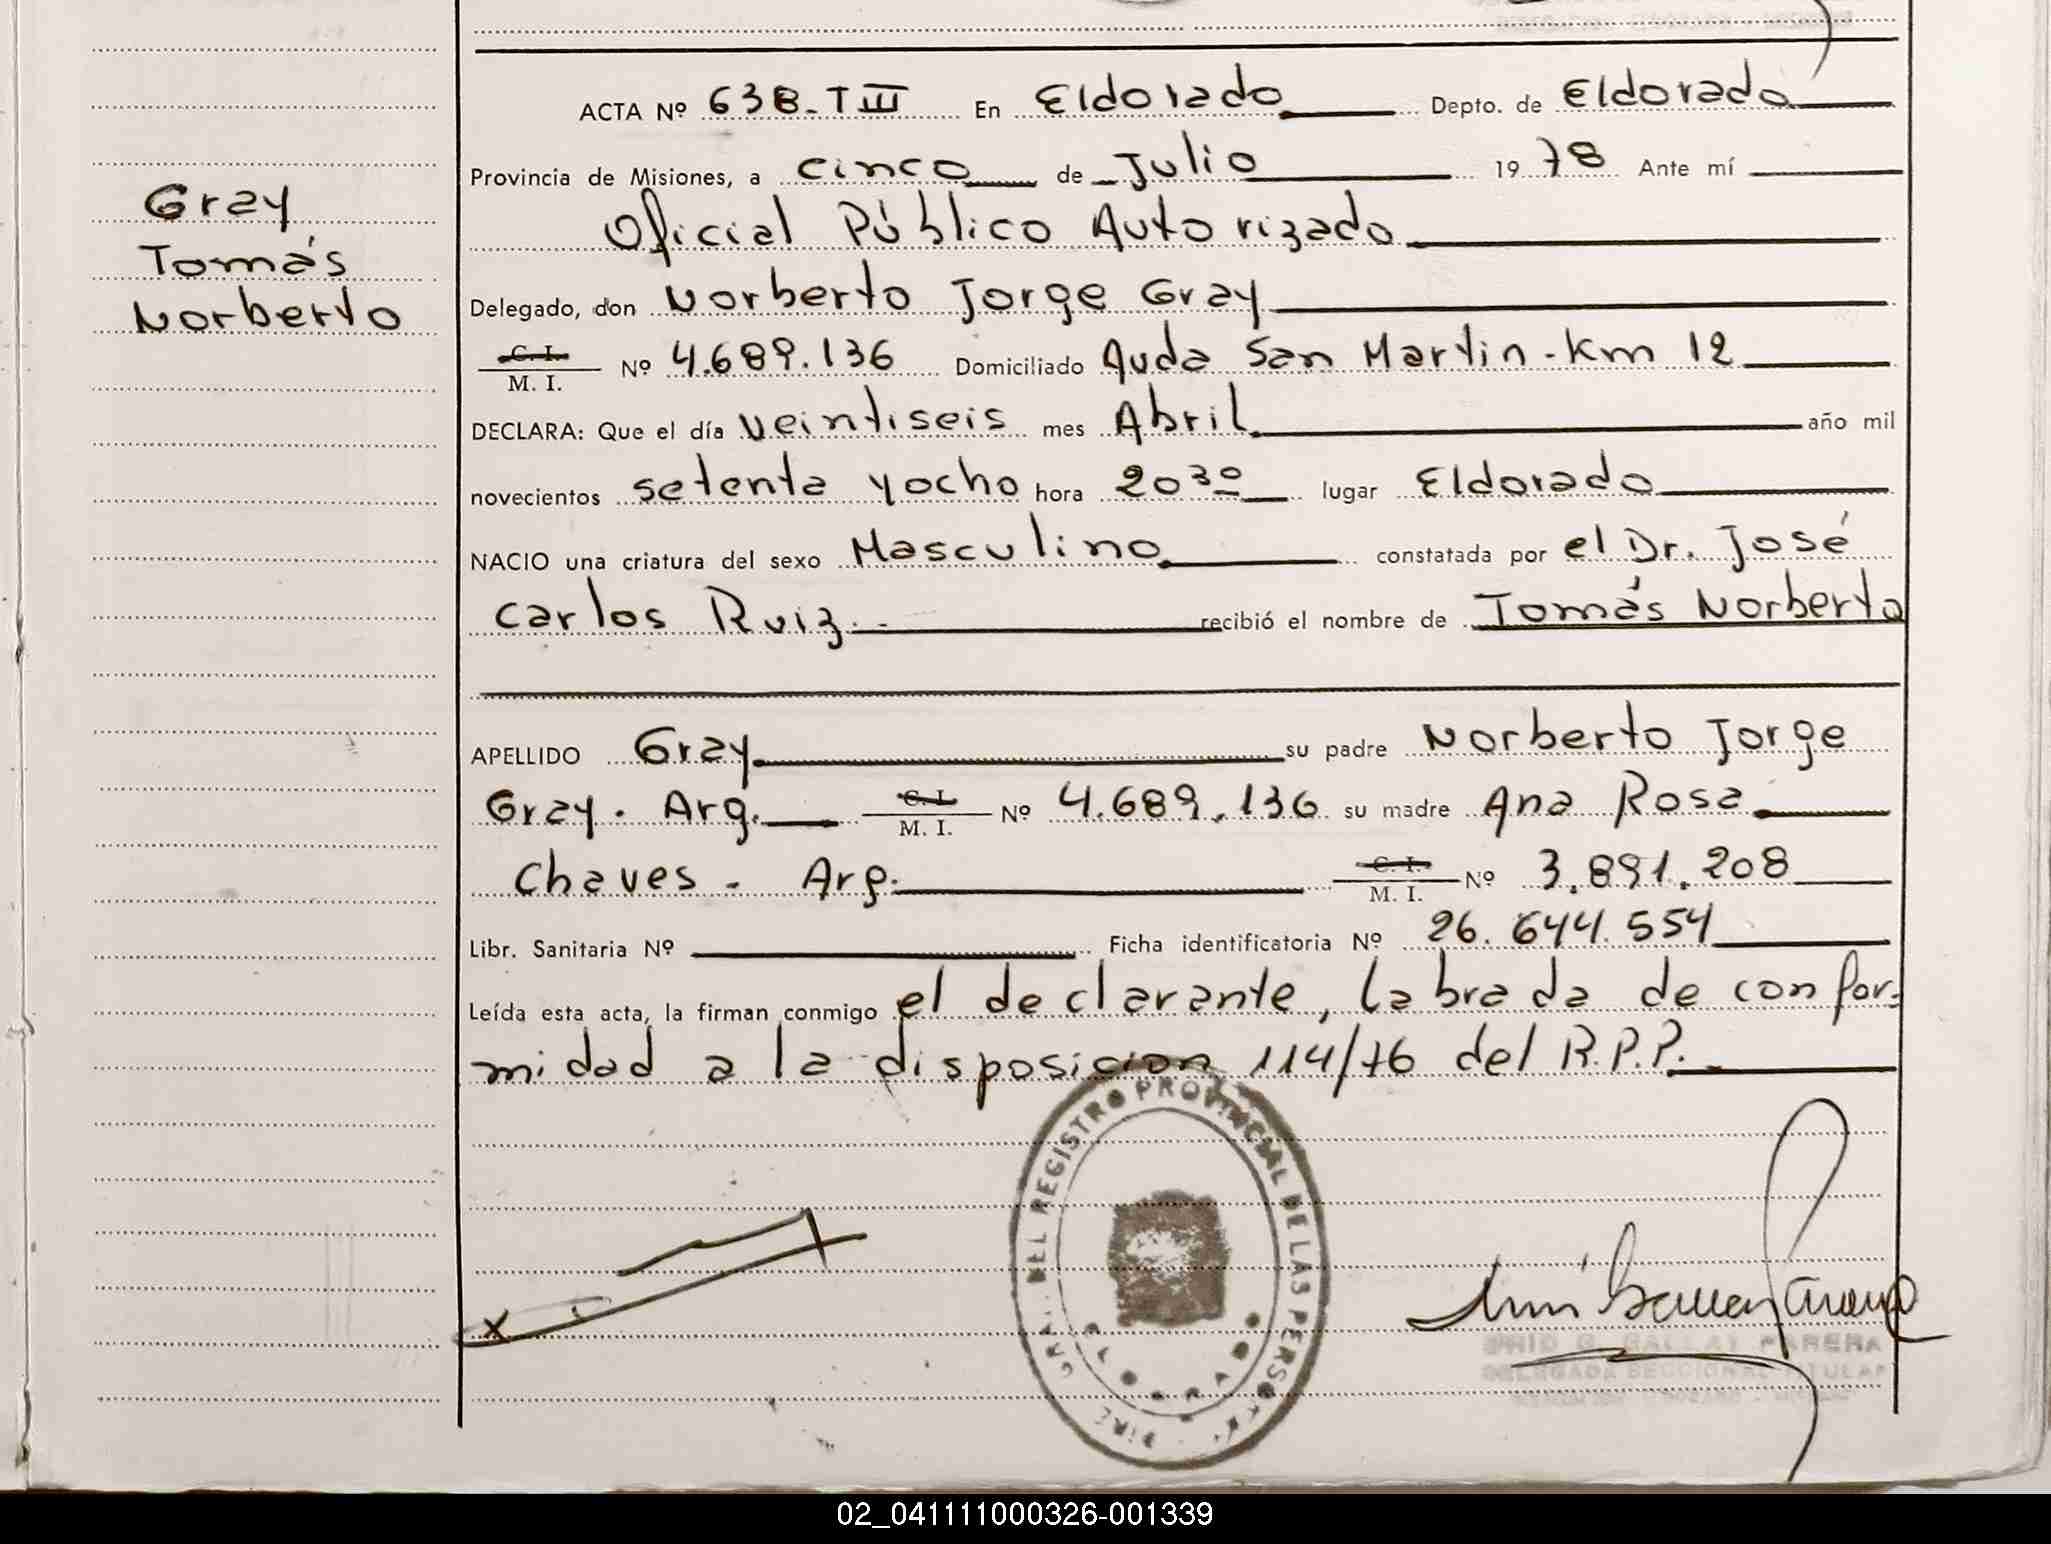 ACTA Nº 638-T III En Eldorado Depto. de Eldorado
Provincia de Misiones, a cinco de Julio 1978 Ante mí
Oficial Público Autorizado
Gray
Tomás
Norberto
Delegado, don Norberto Jorge Gray
C. I.
M. I. Nº 4.689.136 Domiciliado Avda San Martin - Km 12
DECLARA: Que el día veintiseis mes Abril año mil
novecientos setenta y ocho hora 20³⁰ lugar Eldorado
NACIO una criatura del sexo Masculino constatada por el Dr. José
Carlos Ruiz.- recibió el nombre de Tomás Norberto
APELLIDO Gray su padre Norberto Jorge
Gray. Arg. C. I. M. I. Nº 4.689.136 su madre Ana Rosa
Chaves - Arg. C. I. M. I. Nº 3.891.208
Libr. Sanitaria Nº Ficha identificatoria Nº 26.644.554
Leída esta acta, la firman conmigo el declarante, labrada de confor-
midad a la disposicion 114/76 del R.P.P.
DEL REGISTRO PROVINCIAL DE LAS PERSONAS
GRAL.
PARERA
DELEGADA SECCIONAL TITULAR
02_041111000326-001339